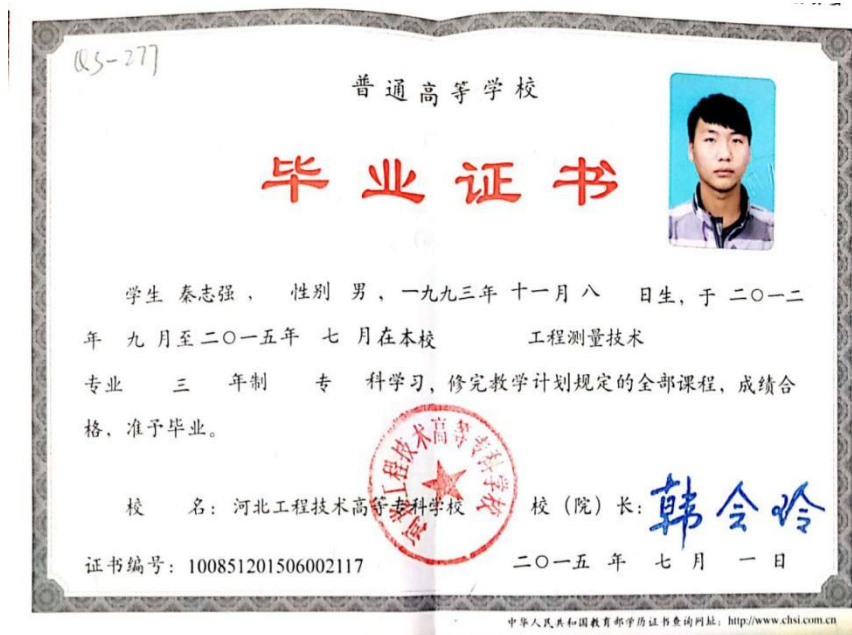 QS-277
普通高等学校
毕业证书
学生 秦志强 , 性别 男 , 一九九三年 十一月 八 日生, 于 二〇一二
年 九 月至 二〇一五年 七 月在本校 工程测量技术
专业 三 年制 专 科学习, 修完教学计划规定的全部课程, 成绩合
格, 准予毕业。
河北工程技术高等专科学校
校 名: 河北工程技术高等专科学校 校 (院) 长: 韩会玲
证书编号: 100851201506002117 二〇一五 年 七 月 一 日
中华人民共和国教育部学历证书查询网址: http://www.chsi.com.cn